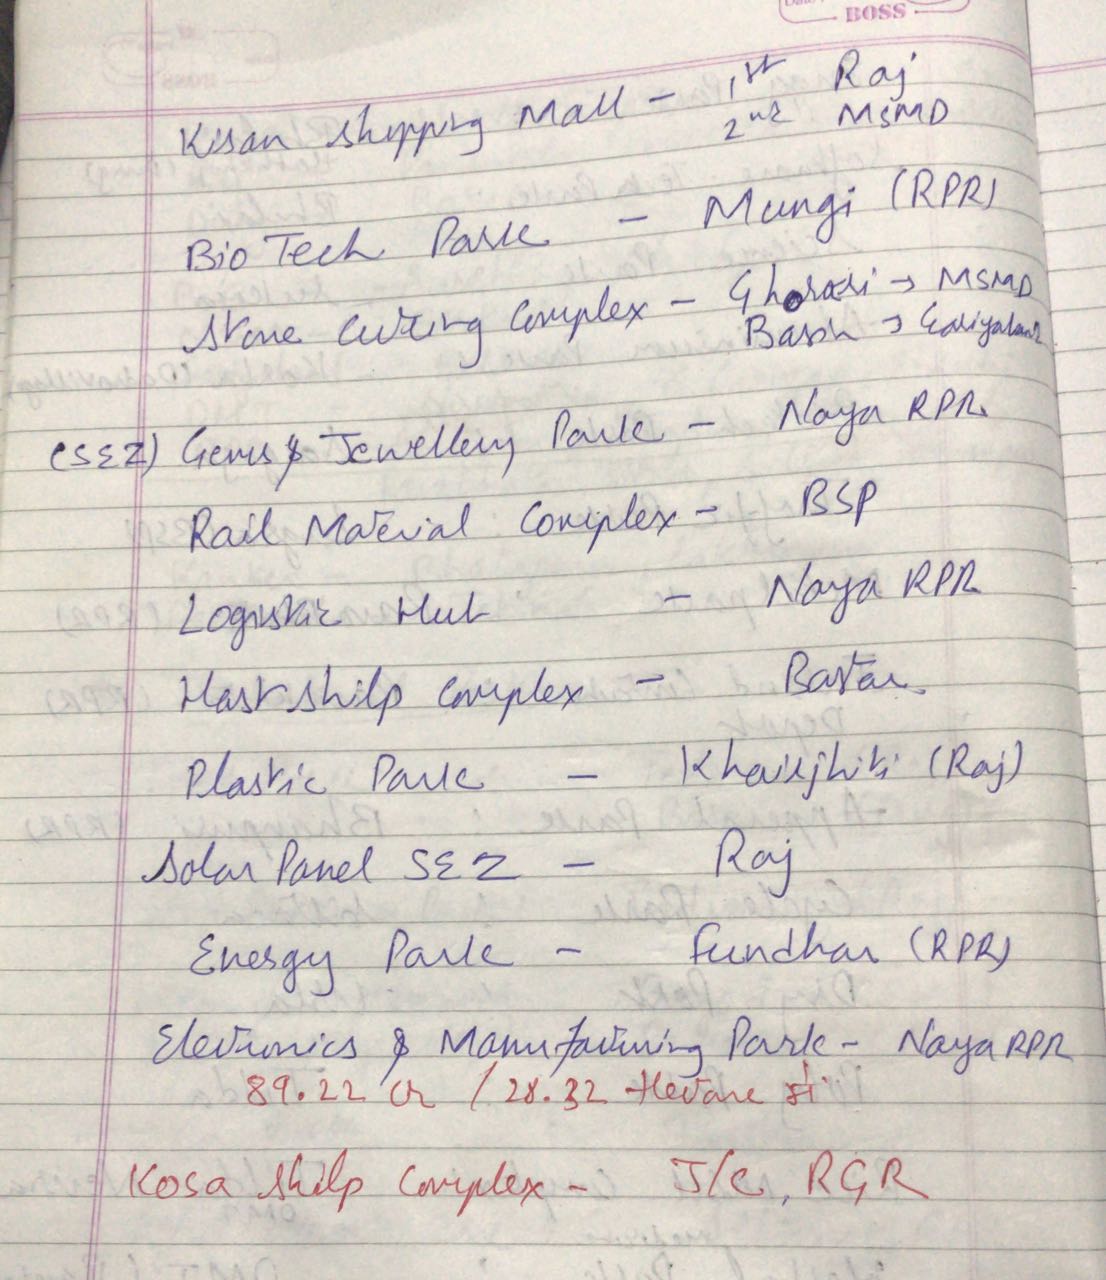 BOSS
Kisan Shopping Mall - 1st Raj
2nd MSMD
Bio Tech Park - Mungi (RPR)
Stone Cutting Complex - Ghorari → MSMD
Basin →
(SEZ) Gems & Jewellery Park - Naya RPR
Rail Material Complex - BSP
Logistic Hub - Naya RPR
Hastshilp Complex - Bastar
Plastic Park - Khairjhiti (Raj)
Solar Panel SEZ - Raj
Energy Park - Fundhar (RPR)
Electronics & Manufacturing Park - Naya RPR
89.22 Cr / 28.32 Hectare में
Kosa Shilp Complex - J/C, RGR